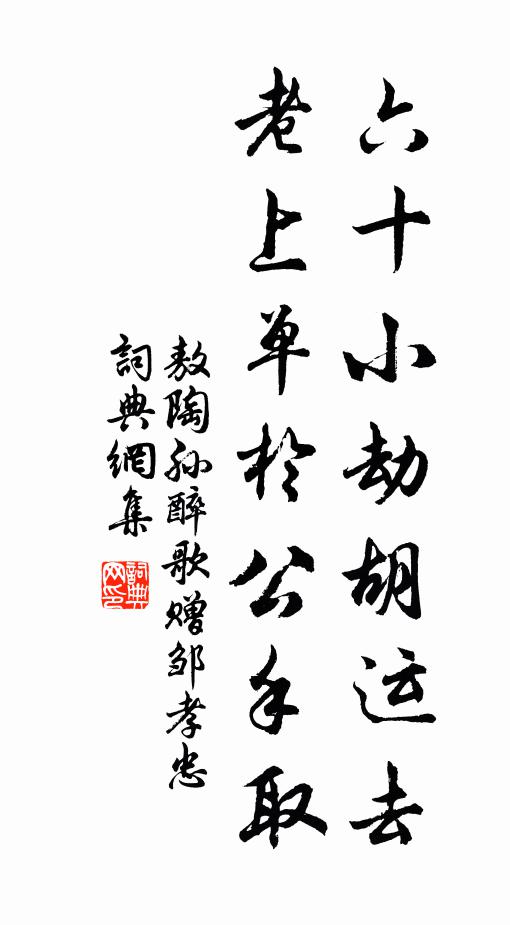 六十小劫胡运去
老上单於公手取
敖陶孙醉歌赠邹孝忠
詞典網集
詞典网印